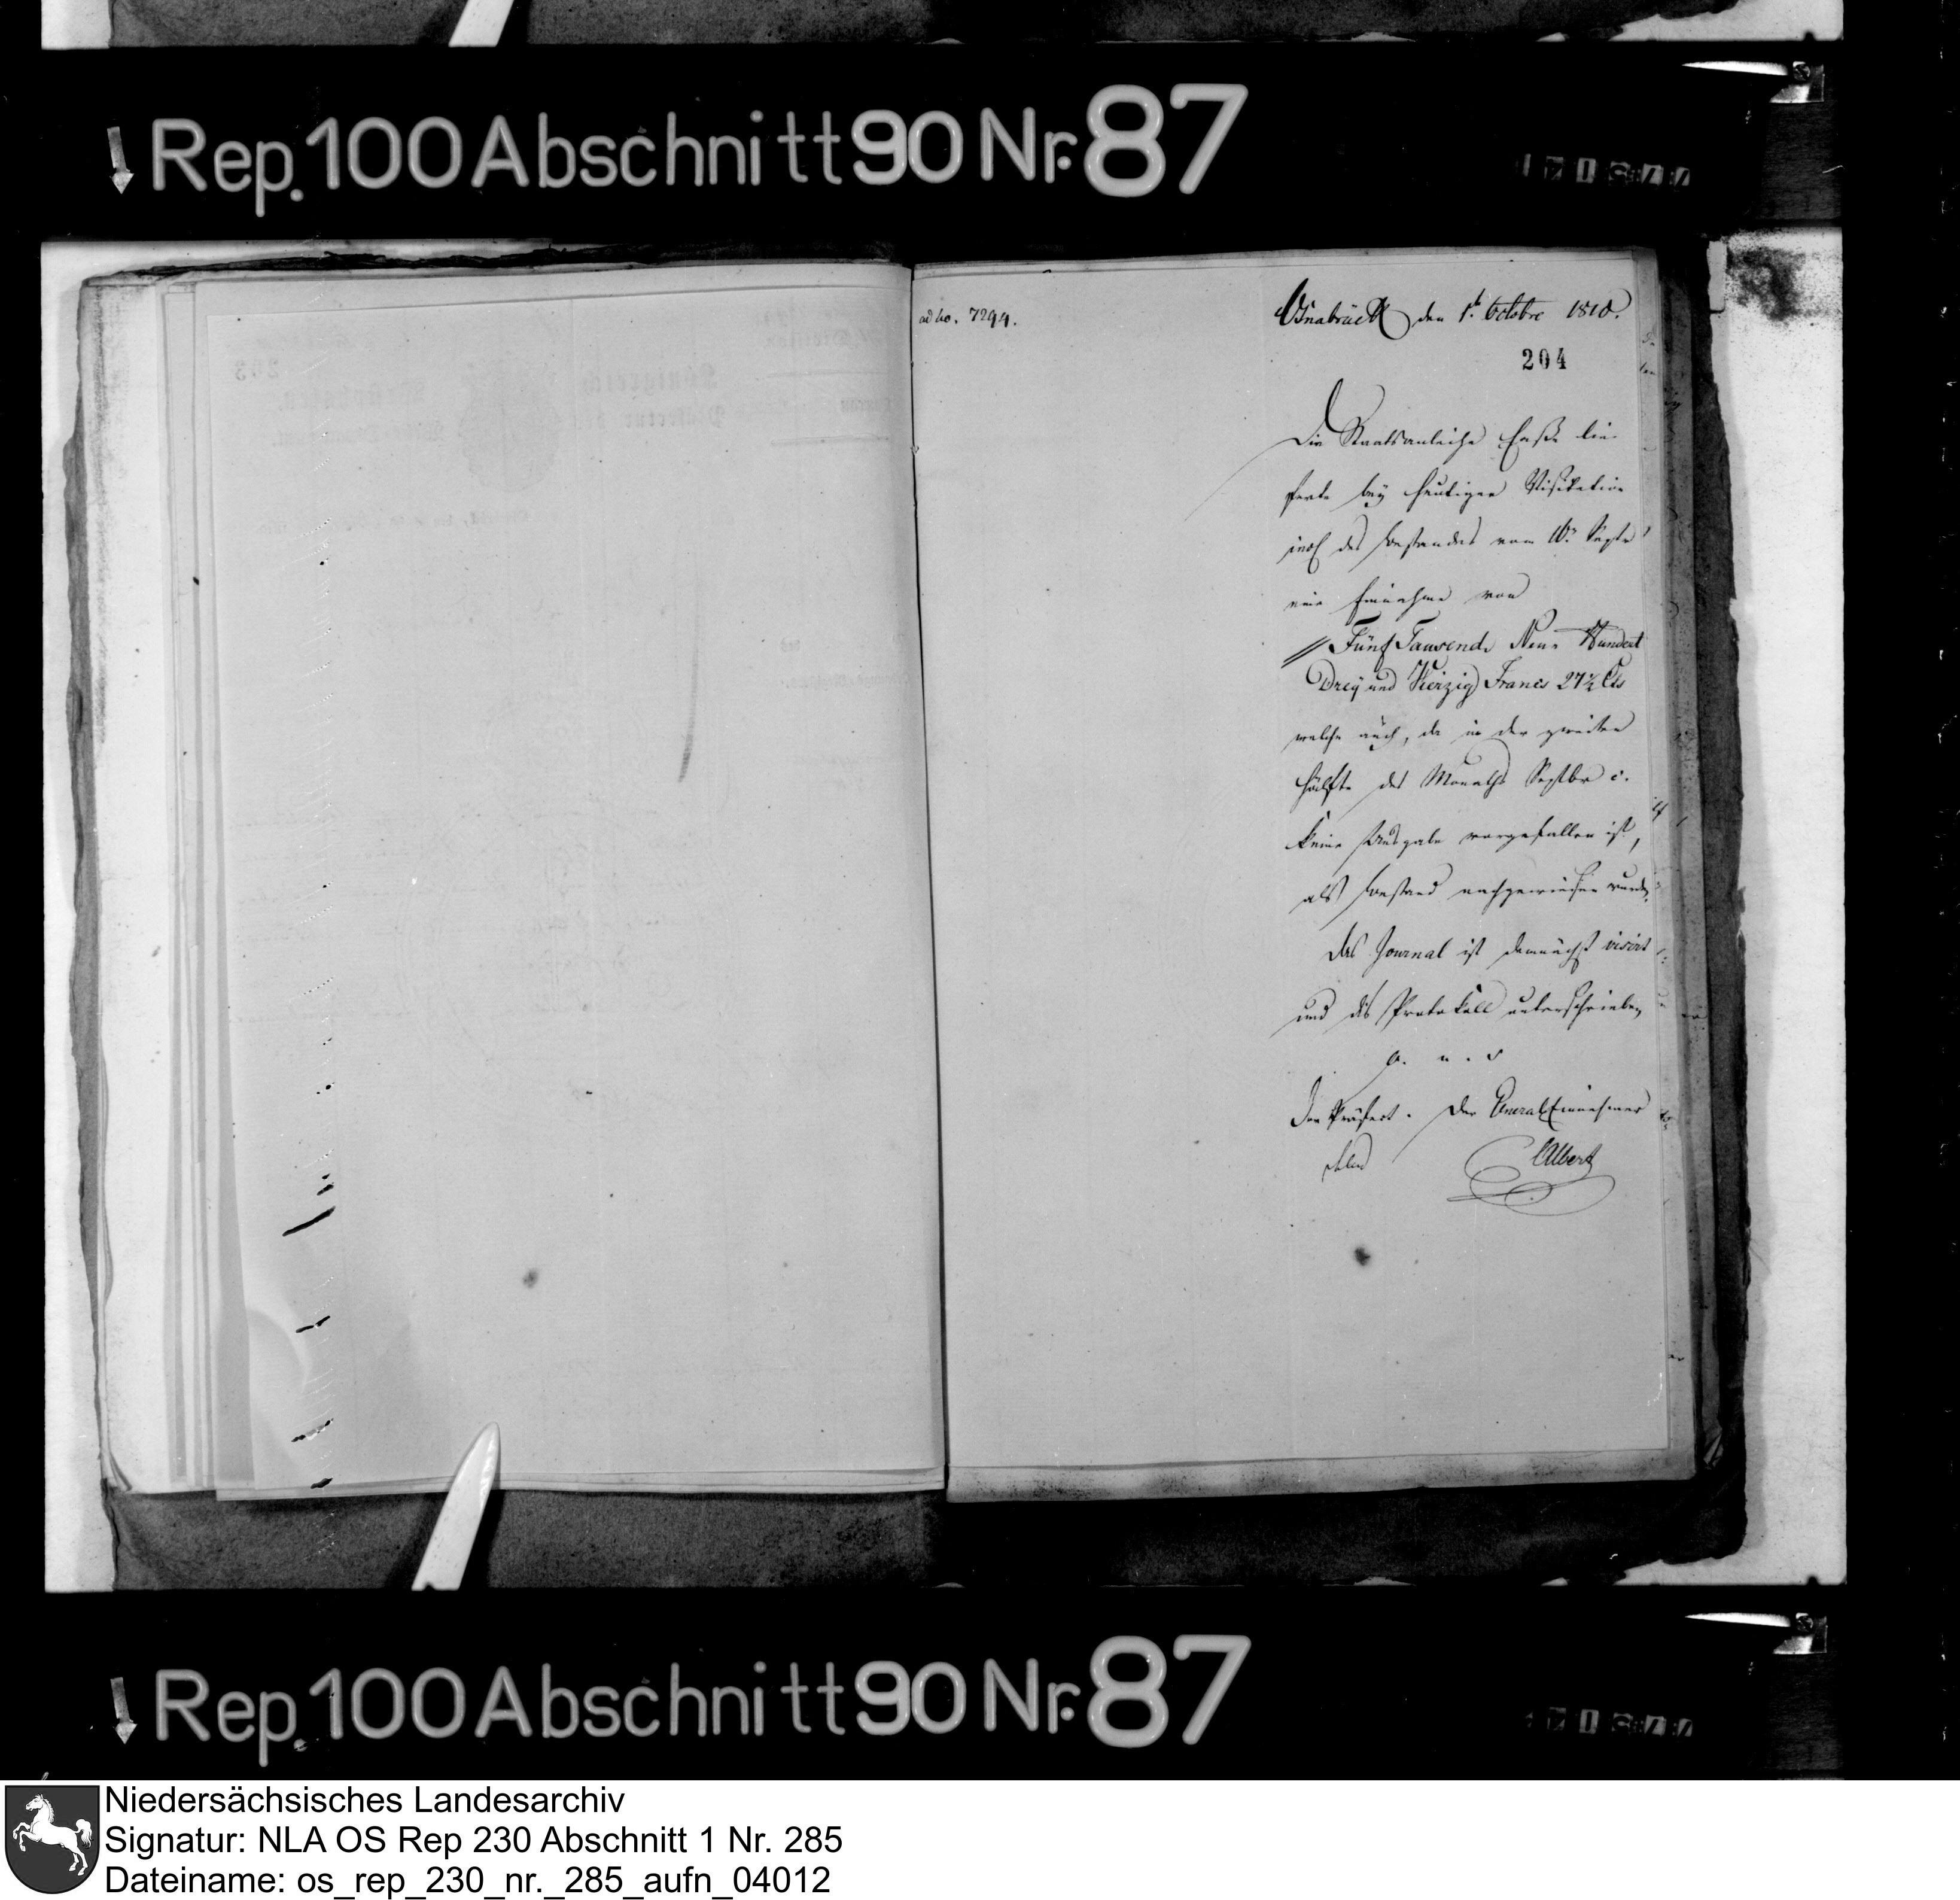 Rep. 100 Abschnitt 90 Nr. 87
ad no. 7294.
Osnabrück den 1t. Octobre 1810.
204
Die Staatsanleihe Casse lie-
ferte bey heutiger Visitation
incl des bestandes vom 16n Septr
eine Einnahme von
// Fünf Tausend, Neun Hundert
Drey und Vierzig Francs 27½ Cts
welche auch, da in der zweiten
hälfte des Monaths Septbr c.
keine Ausgabe vorgefallen ist,
als bestand nachgewiesen wurde.
Das Journal ist demnächst visirt
und dis Protokoll unterschrieben
a. u. s
Der Präfect. Der General Einnehmer
Albert
Rep. 100 Abschnitt 90 Nr. 87
Niedersächsisches Landesarchiv
Signatur: NLA OS Rep 230 Abschnitt 1 Nr. 285
Dateiname: os_rep_230_nr._285_aufn_04012